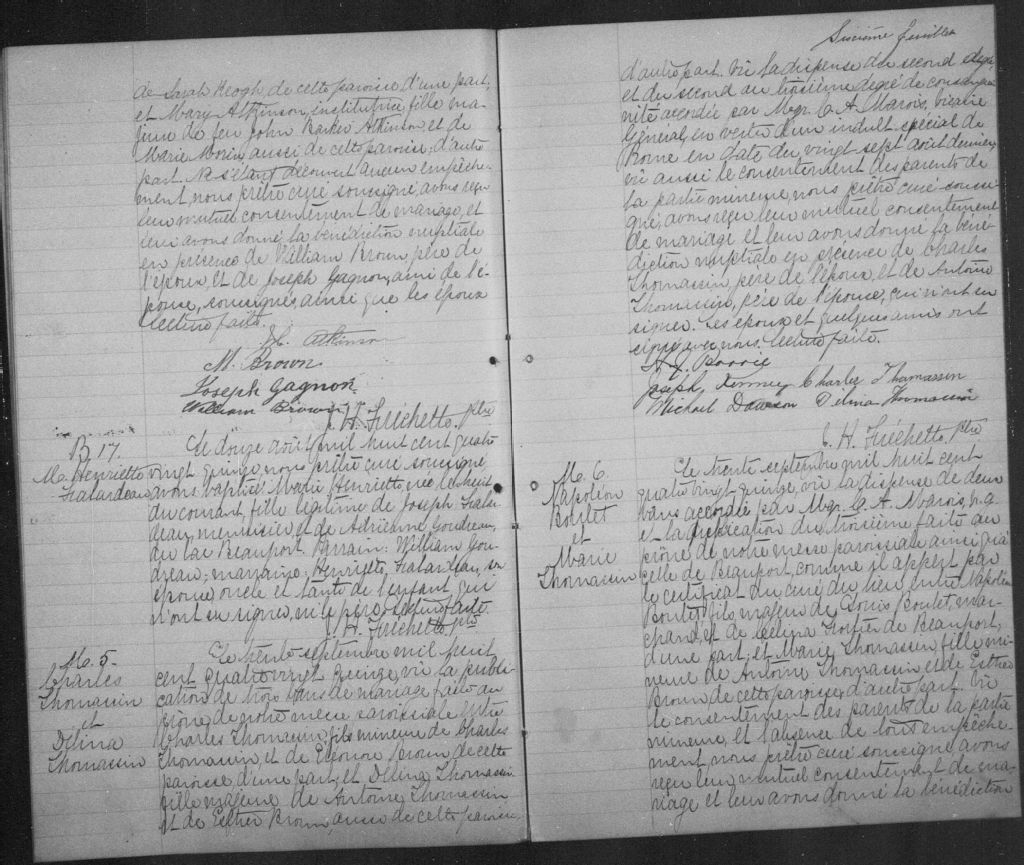 de Sarah Keogh, de cette paroisse d'une part,
et Mary Atkinson, institutrice fille ma-
jeure de feu John Barker Atkinson et de
Marie Morin aussi de cette paroisse, d'autre
part. Ne s'étant découvert aucun empêche-
ment, nous prêtre curé soussigné avons reçu
leur mutuel consentement de mariage, et
leur avons donné la bénédiction nuptiale
en présence de William Brown, père de
l'époux, et de Joseph Gagnon, ami de l'é-
pouse, soussignés, ainsi que les époux
Lecture faite.
Atkinson
M. Brown
Joseph Gagnon
William Brown
J. H. Fréchette, ptre
B 17.
M. Henriette
Falardeau
Le douze août mil huit cent quatre
vingt quinze, nous prêtre curé soussigné
avons baptisé Marie Henriette née le huit
du courant, fille légitime de Joseph Falar-
deau, menuisier, et de Adrienne Goudreau,
du lac Beauport. Parrain: William Gou-
dreau; marraine, Henriette Falardeau, son
épouse, oncle et tante de l'enfant qui
n'ont su signer, ni le père. Lecture faite
J. H. Fréchette, ptre
M. 5.
Charles
Thomassin
et
Délina
Thomassin
Le trente septembre mil huit
cent quatre vingt quinze, vu la publi-
cation de trois bans de mariage faite au
prône de notre messe paroissiale entre
Charles Thomassin, fils mineur de Charles
Thomassin, et de Eléonore Brown de cette
paroisse d'une part; et Délina Thomassin
fille majeure de Antoine Thomassin
et de Esther Brown, aussi de cette paroisse,
Sixième feuillet
d'autre part. Vu la dispense du second degré
et du second au troisième degré de consangui-
nité accordée par Mgr. C. A. Marois, vicaire
Général, en vertu d'un indult spécial de
Rome en date du vingt sept août dernier,
vu aussi le consentement des parents de
la partie mineure, nous prêtre curé soussi-
gné, avons reçu leur mutuel consentement
de mariage et leur avons donné la béné-
diction nuptiale en présence de Charles
Thomassin, père de l'époux, et de Antoine
Thomassin, père de l'épouse, qui n'ont su
signer. Les époux et quelques amis ont
signé avec nous. Lecture faite.
Joseph Kenney Charles Thomassin
Michael Dawson Délina Thomassin
J. H. Fréchette, ptre
M. 6
Napoléon
Boulet
et
Marie
Thomassin
Le trente septembre mil huit cent
quatre vingt quinze, vu la dispense de deux
bans accordée par Mgr. C. A. Marois, v.g.
et la publication du troisième faite au
prône de notre messe paroissiale ainsi qu'à
celle de Beauport, comme il appert par
le certificat du curé du lieu, entre Napoléon
Boulet, fils majeur de Louis Boulet, mar-
chand, et de Célina Fortier de Beauport,
d'une part; et Marie Thomassin, fille mi-
neure de Antoine Thomassin et de Esther
Brown de cette paroisse, d'autre part. Vu
le consentement des parents de la partie
mineure, et l'absence de tout empêche-
ment nous prêtre curé soussigné avons
reçu leur mutuel consentement de ma-
riage et leur avons donné la bénédiction